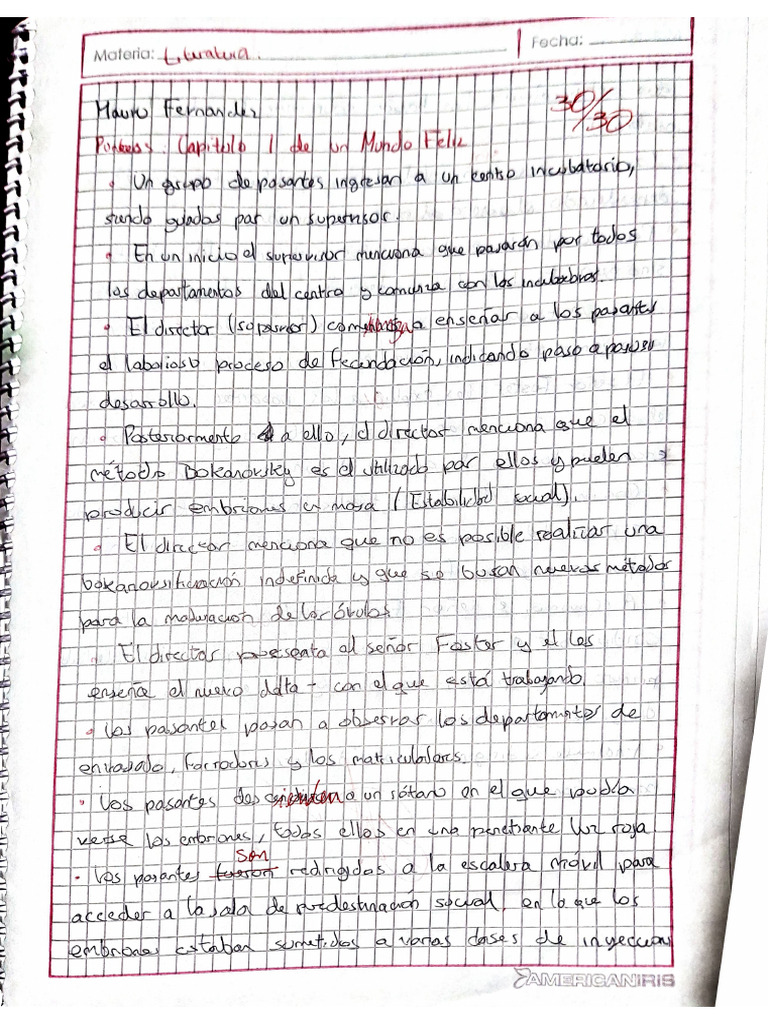 Materia: Literatura
Fecha:
Mauro Fernandez
30/30
Punteos Capitulo 1 de un Mundo Feliz
• Un grupo de pasantes ingresan a un centro incubatorio,
siendo guiados por un supervisor.
• En un inicio el supervisor menciona que pasarán por todos
los departamentos del centro y comienza con los incubadoras.
• El director (supervisor) a enseñar a los pasantes
el laborioso proceso de fecundación, indicando paso a paso su
desarrollo.
• Posteriormente a ello, el director menciona que el
método Bokanovsky es el utilizado por ellos y pueden
producir embriones en masa (Estabilidad social).
• El director menciona que no es posible realizar una
bokanovsificación indefinida y que se buscan nuevos métodos
para la maduración de los óvulos
• El director presenta al señor Foster y el les
enseña el nuevo delta - con el que está trabajando.
• Los pasantes pasan a observar los departamentos de
envasado, Forradores y los matriculadores.
• Los pasantes descienden a un sótano en el que podía
verse los embriones, todos ellos en una penetrante luz roja
son
• Los pasantes fueron redirigidos a la escalera móvil para
acceder a la sala de predestinación social, en lo que los
embriones estaban sometidos a varias dases de inyeccion
AMERICANIRIS